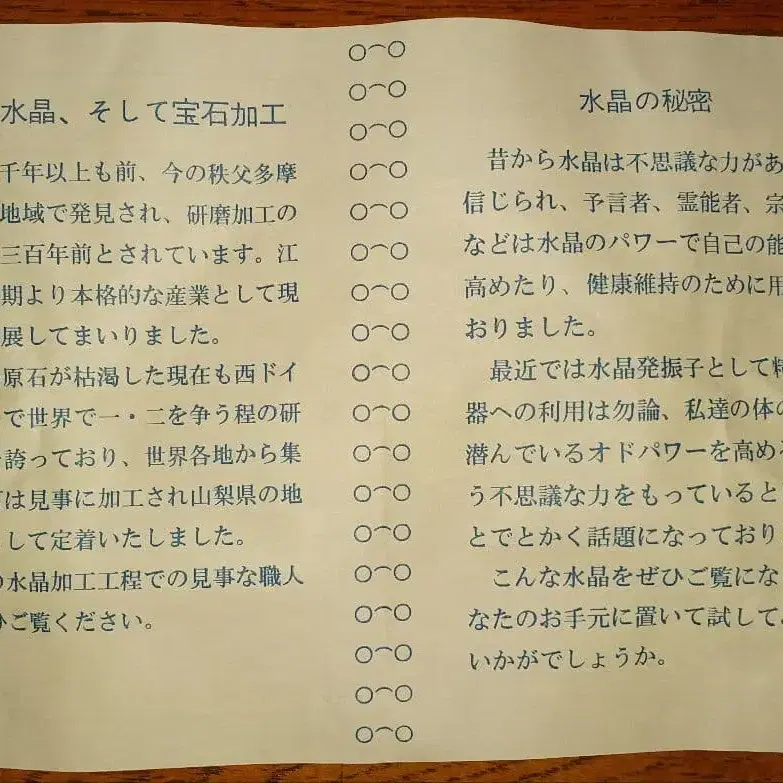 水晶、そして宝石加工
千年以上も前、今の秩父多摩
地域で発見され、研磨加工の
三百年前とされています。江
期より本格的な産業として現
展してまいりました。
原石が枯渇した現在も西ドイ
で世界で一・二を争う程の研
誇っており、世界各地から集
は見事に加工され山梨県の地
して定着いたしました。
水晶加工工程での見事な職人
ご覧ください。
水晶の秘密
昔から水晶は不思議な力があ
信じられ、予言者、霊能者、宗
などは水晶のパワーで自己の能
高めたり、健康維持のために用
おりました。
最近では水晶発振子として精
器への利用は勿論、私達の体の
潜んでいるオドパワーを高め
う不思議な力をもっていると
とでとかく話題になっており
こんな水晶をぜひご覧にな
なたのお手元に置いて試して
いかがでしょうか。